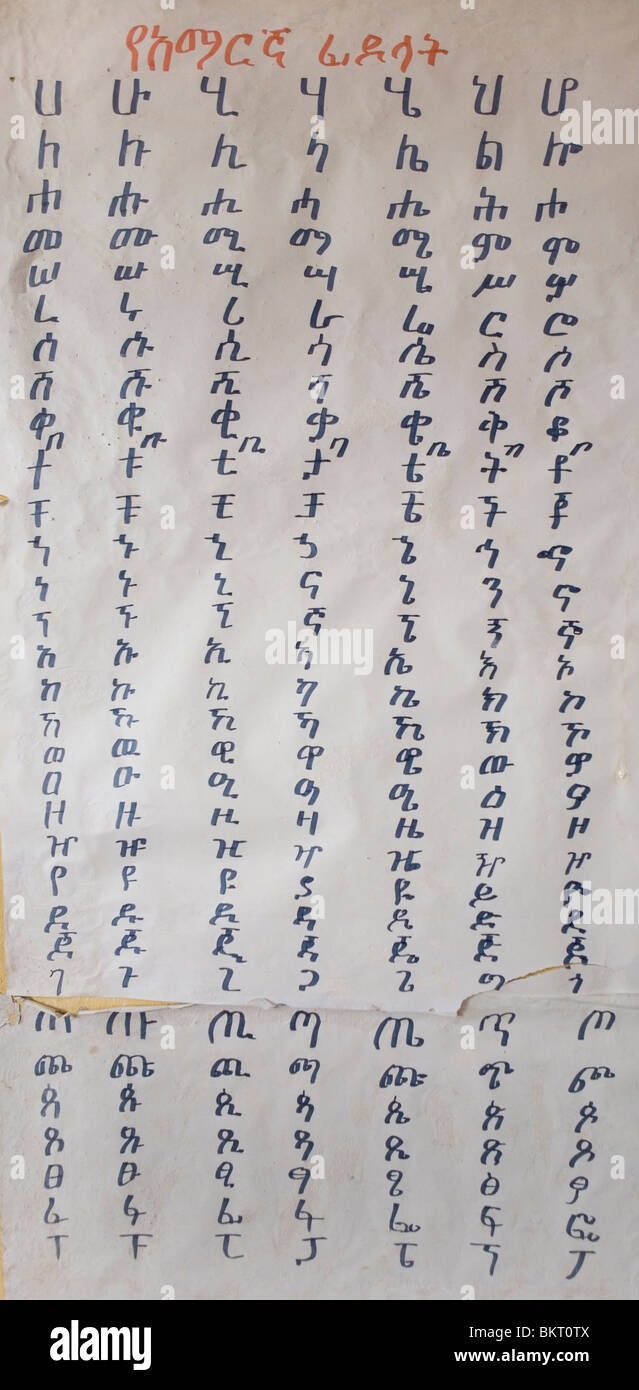 የአማርኛ ፊደላት
ሀ ሁ ሂ ሃ ሄ ህ ሆ
ለ ሉ ሊ ላ ሌ ል ሎ
ሐ ሑ ሒ ሓ ሔ ሕ ሖ
መ ሙ ሚ ማ ሜ ም ሞ
ሠ ሡ ሢ ሣ ሤ ሥ ሦ
ረ ሩ ሪ ራ ሬ ር ሮ
ሰ ሱ ሲ ሳ ሴ ስ ሶ
ሸ ሹ ሺ ሻ ሼ ሽ ሾ
ቀ ቁ ቂ ቃ ቄ ቅ ቆ
በ ቡ ቢ ባ ቤ ብ ቦ
ተ ቱ ቲ ታ ቴ ት ቶ
ቸ ቹ ቺ ቻ ቼ ች ቾ
ኀ ኁ ኂ ኃ ኄ ኅ ኆ
ነ ኑ ኒ ና ኔ ን ኖ
ኘ ኙ ኚ ኛ ኜ ኝ ኞ
አ ኡ ኢ ኣ ኤ እ ኦ
ከ ኩ ኪ ካ ኬ ክ ኮ
ኸ ኹ ኺ ኻ ኼ ኽ ኾ
ወ ዉ ዊ ዋ ዌ ው ዎ
ዐ ዑ ዒ ዓ ዔ ዕ ዖ
ዘ ዙ ዚ ዛ ዜ ዝ ዞ
ዠ ዡ ዢ ዣ ዤ ዥ ዦ
የ ዩ ዪ ያ ዬ ይ ዮ
ደ ዱ ዲ ዳ ዴ ድ ዶ
ጀ ጁ ጂ ጃ ጄ ጅ ጆ
ገ ጉ ጊ ጋ ጌ ግ ጎ
ጠ ጡ ጢ ጣ ጤ ጥ ጦ
ጨ ጩ ጪ ጫ ጬ ጭ ጮ
ጰ ጱ ጲ ጳ ጴ ጵ ጶ
ጸ ጹ ጺ ጻ ጼ ጽ ጾ
ፀ ፁ ፂ ፃ ፄ ፅ ፆ
ፈ ፉ ፊ ፋ ፌ ፍ ፎ
ፐ ፑ ፒ ፓ ፔ ፕ ፖ
alamy
Image ID: BKT0TX
www.alamy.com